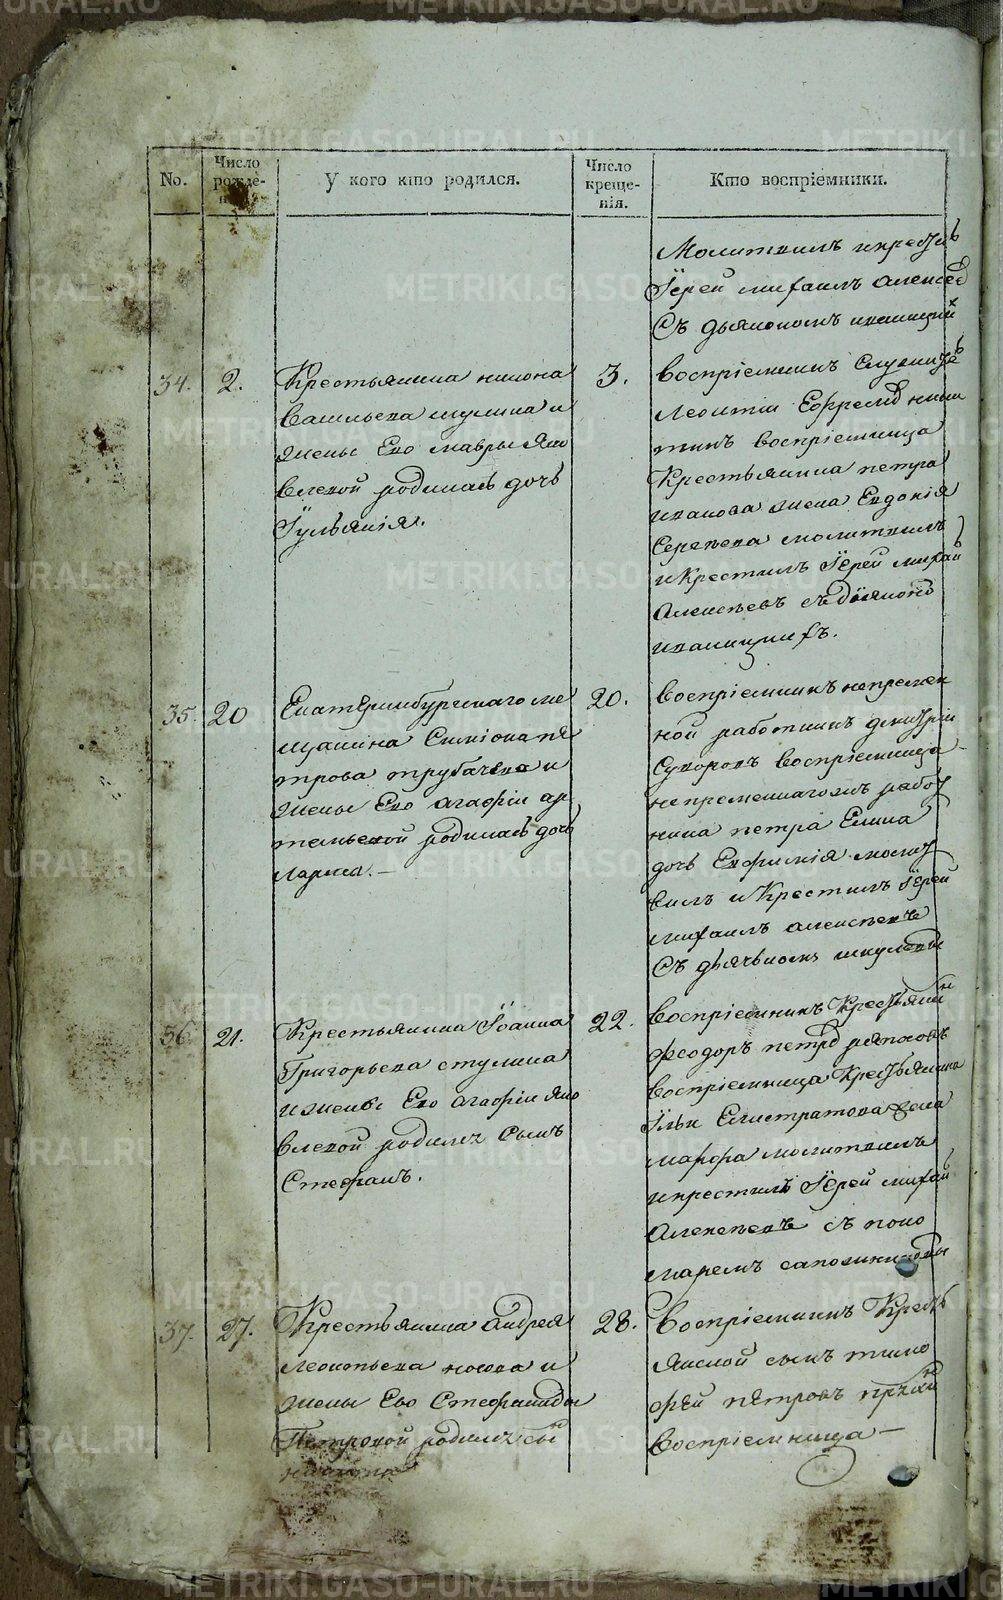 No.
Число рожде-
У кого кто родился.
Число креще-нія.
Кто воспріемники.
Молитвилъ и крестилъ
Іерей Михаилъ Алексее
Съ дьякономъ
34.
2.
Крестьянина никона
Васильева шулина и
жены Его мавры Яко
влевой родилась дочь
Іульянія.
3.
воспріемникъ
Леонтіи Ефремо
тинъ воспріемница
Крестьянина петра
иванова жена Евдокія
Сергѣева молитвилъ
и Крестилъ Іерей михаи
Алексѣевъ съ дьяконо
35.
20
Екатеринбургскаго ме
щанина Симіона пе
трова трубачева и
жены Его агафіи ар
темьевой родилась дочь
лариса.
20.
воспріемникъ непремен
ной работникъ дмитріи
Суворовъ воспріемница
непременнаго работ
ника петра Елина
дочь Евфимія молит
вилъ и Крестилъ Іерей
михаилъ алексѣевъ
Съ дьячькомъ
36.
21.
Крестьянина Іоанна
Григорьева стулина
и жены Его агафіи Яко
влевой родилъ Сынъ
Стефанъ.
22.
воспріемникъ Крестьяни
феодоръ петро
воспріемница Крестьянина
Ильи Елистратова жена
марфа молитвилъ
и крестилъ Іерей михаи
Алексѣевъ съ поно
маремъ сапожниковы
37.
27.
Крестьянина Андрея
Леонтьева и
жены Его Стефаниды
Петровой родилъ сы
28.
воспріемникъ Кресть
янской сынъ тимо
фей пѣтровъ
воспріемница